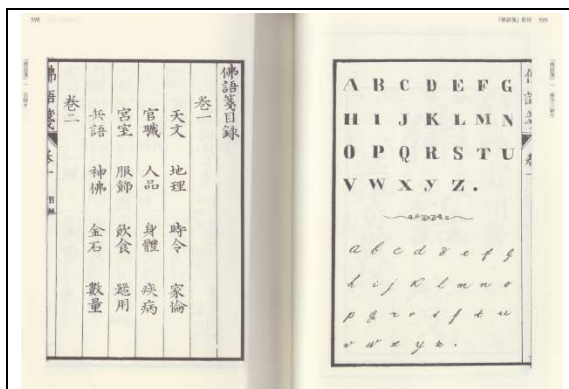 598
佛語箋目錄
卷一
天文 地理 時令 家倫
官職 人品 身體 疾病
宮室 服飾 飲食 器用
兵語 神佛 金石 數量
卷二
佛語箋 卷一
『佛語箋』影印 599
A B C D E F G
H I J K L M N
O P Q R S T U
V W X Y Z .
a b c d e f g
h i j k l m n o
p q r s ſ t u
v w x y z .
佛語箋 卷一